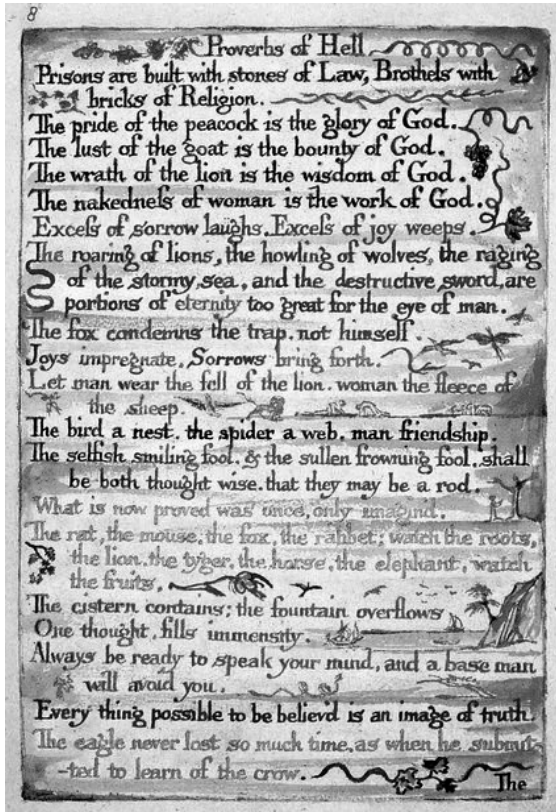 8
Proverbs of Hell
Prisons are built with stones of Law, Brothels with
bricks of Religion.
The pride of the peacock is the glory of God.
The lust of the goat is the bounty of God.
The wrath of the lion is the wisdom of God.
The nakedness of woman is the work of God.
Excess of sorrow laughs. Excess of joy weeps.
The roaring of lions, the howling of wolves, the raging
of the stormy sea, and the destructive sword, are
portions of eternity too great for the eye of man.
The fox condemns the trap, not himself.
Joys impregnate. Sorrows bring forth.
Let man wear the fell of the lion. woman the fleece of
the sheep.
The bird a nest, the spider a web, man friendship.
The selfish smiling fool, & the sullen frowning fool, shall
be both thought wise, that they may be a rod.
What is now proved was once, only imagin'd.
The rat, the mouse, the fox, the rabbet; watch the roots,
the lion, the tyger, the horse, the elephant, watch
the fruits.
The cistern contains; the fountain overflows
One thought, fills immensity.
Always be ready to speak your mind, and a base man
will avoid you.
Every thing possible to be believ'd is an image of truth.
The eagle never lost so much time, as when he submit-
-ted to learn of the crow.
The